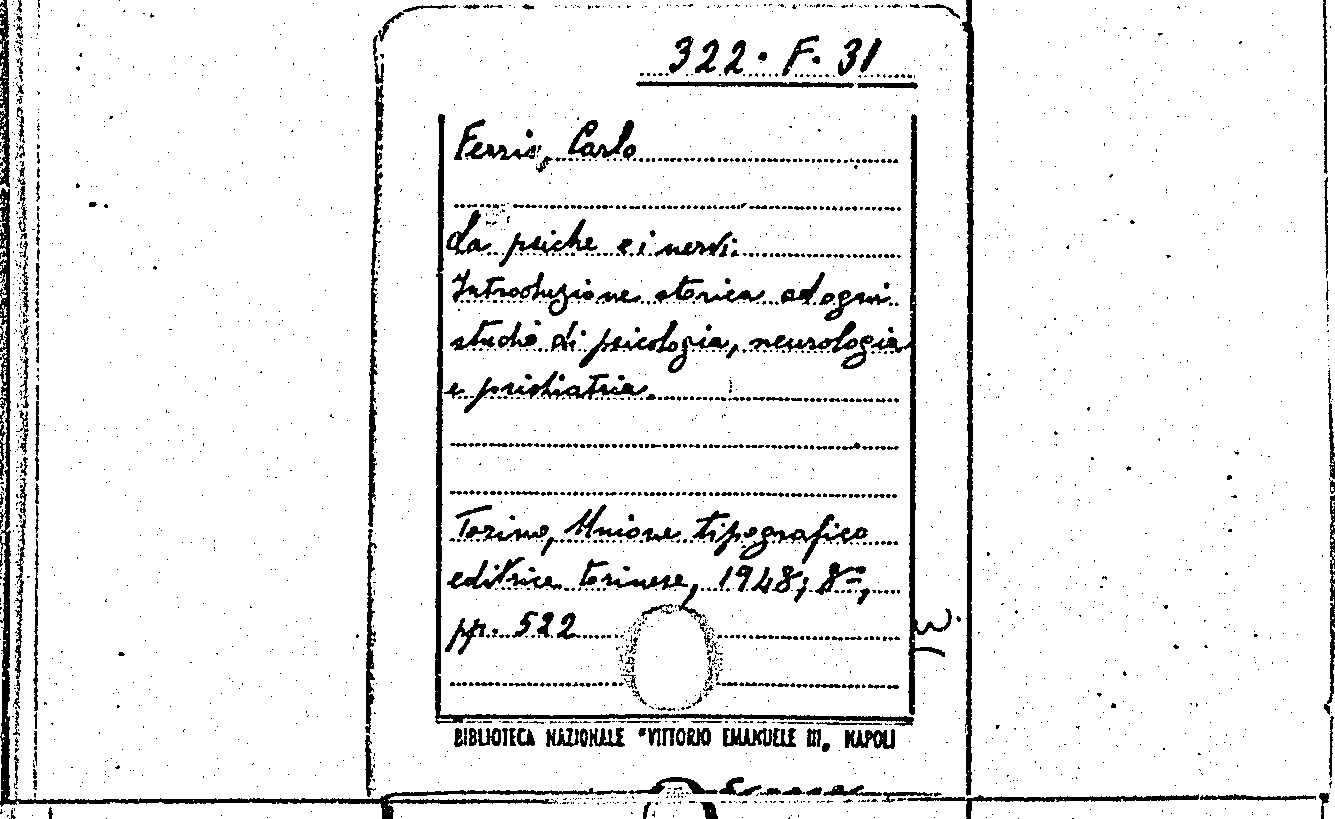 322. F. 31
Ferrio, Carlo
La psiche e i nervi.
Introduzione storica ad ogni
studio di psicologia, neurologia
e psichiatria.
Torino, Unione tipografico
editrice torinese, 1948; 8°,
pp. 522
BIBLIOTECA NAZIONALE "VITTORIO EMANUELE III" NAPOLI